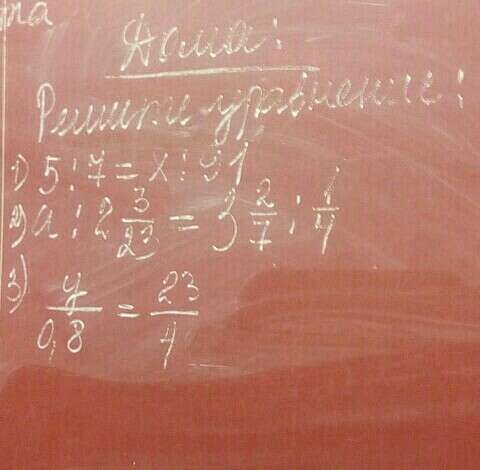 Дома:
Решите уравнение:
1) 5 : 7 = x : 91
2) a : 2 3/23 = 3 2/7 : 1/4
3) y/0,8 = 23/4